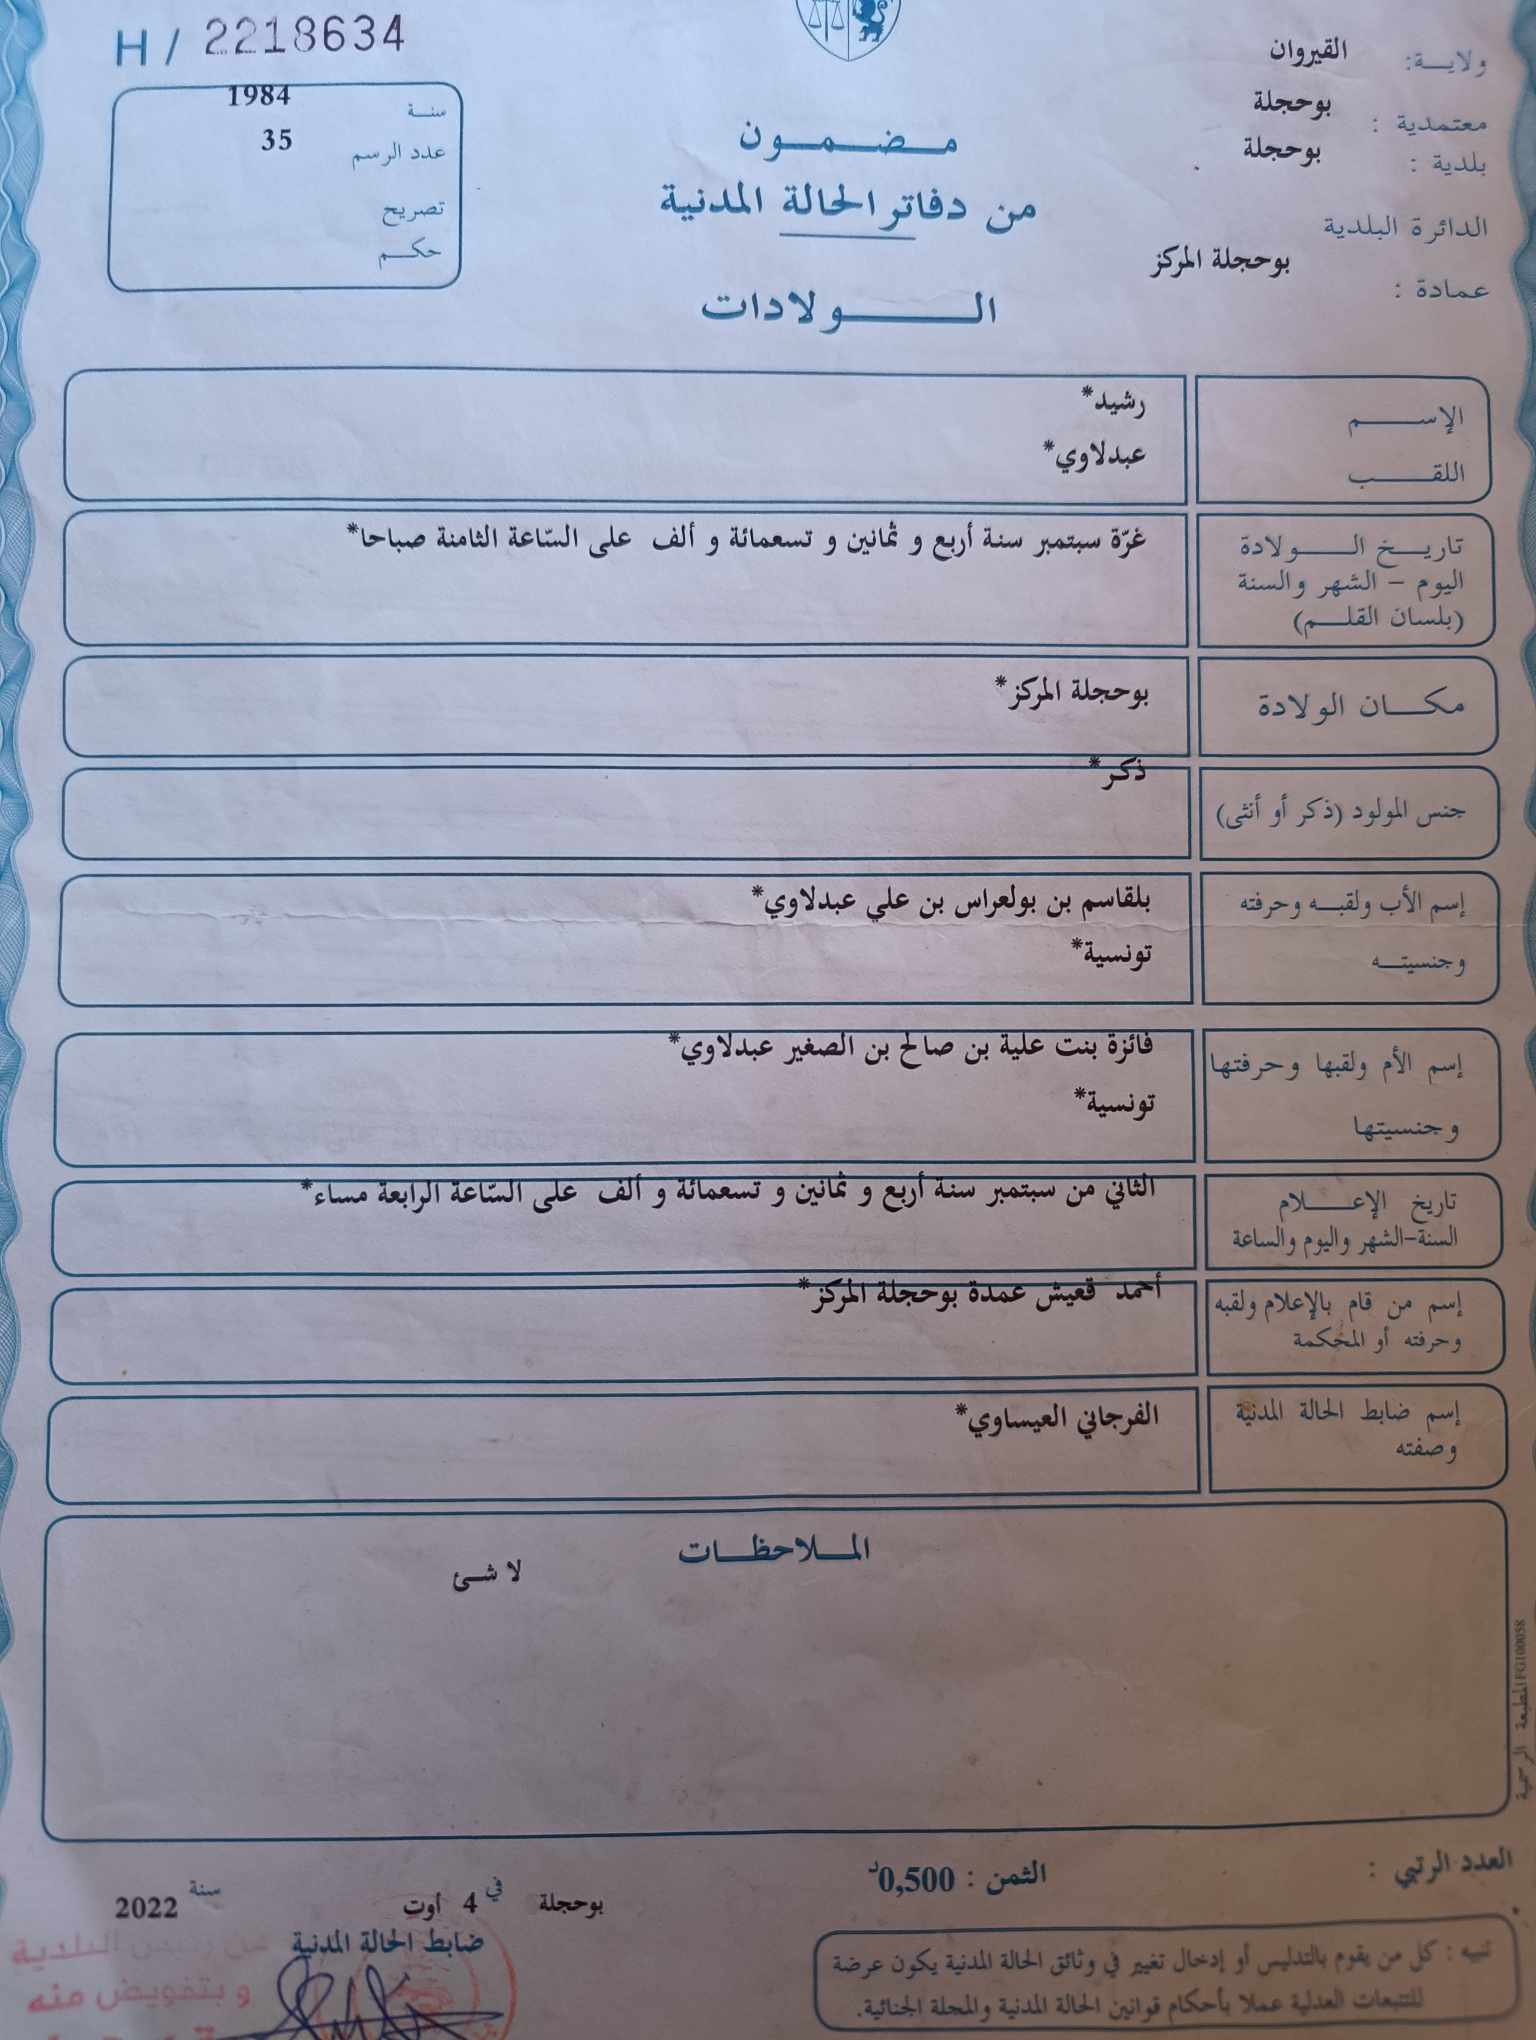 H / 2218634
ولايـــة: القيروان
معتمدية : بوحجلة
بلدية : بوحجلة
الدائرة البلدية
عمادة : بوحجلة المركز
سنـة 1984
عدد الرسم 35
تصريح
حكـم
مـضـمـون
من دفاتر الحالة المدنية
الـولادات
الإسـم رشيد*
اللقـب عبدلاوي*
تاريـخ الـولادة غرّة سبتمبر سنة أربع و ثمانين و تسعمائة و ألف على السّاعة الثامنة صباحا*
اليوم - الشهر والسنة
(بلسان القلـم)
مكـان الولادة بوحجلة المركز*
ذكر*
جنس المولود (ذكر أو أنثى)
إسم الأب ولقبـه وحرفته بلقاسم بن بولعراس بن علي عبدلاوي*
وجنسيتـه تونسية*
إسم الأم ولقبها وحرفتها فائزة بنت علية بن صالح بن الصغير عبدلاوي*
وجنسيتها تونسية*
تاريخ الإعـلام الثاني من سبتمبر سنة أربع و ثمانين و تسعمائة و ألف على السّاعة الرابعة مساء*
السنة-الشهر واليوم والساعة
إسم من قام بالإعلام ولقبه أحمد قعيش عمدة بوحجلة المركز*
وحرفته أو المحكمة
إسم ضابط الحالة المدنية الفرجاني العيساوي*
وصفته
المـلاحظـات
لا شئ
المطبعة الرسمية FG100058
العدد الرتبي :
الثمن : 0,500د
بوحجلة في 4 أوت سنة 2022
ضابط الحالة المدنية
عن رئيس البلدية
و بتفويض منه
تنبيه : كل من يقوم بالتدليس أو إدخال تغيير في وثائق الحالة المدنية يكون عرضة
للتتبعات العدلية عملا بأحكام قوانين الحالة المدنية والمجلة الجنائية.